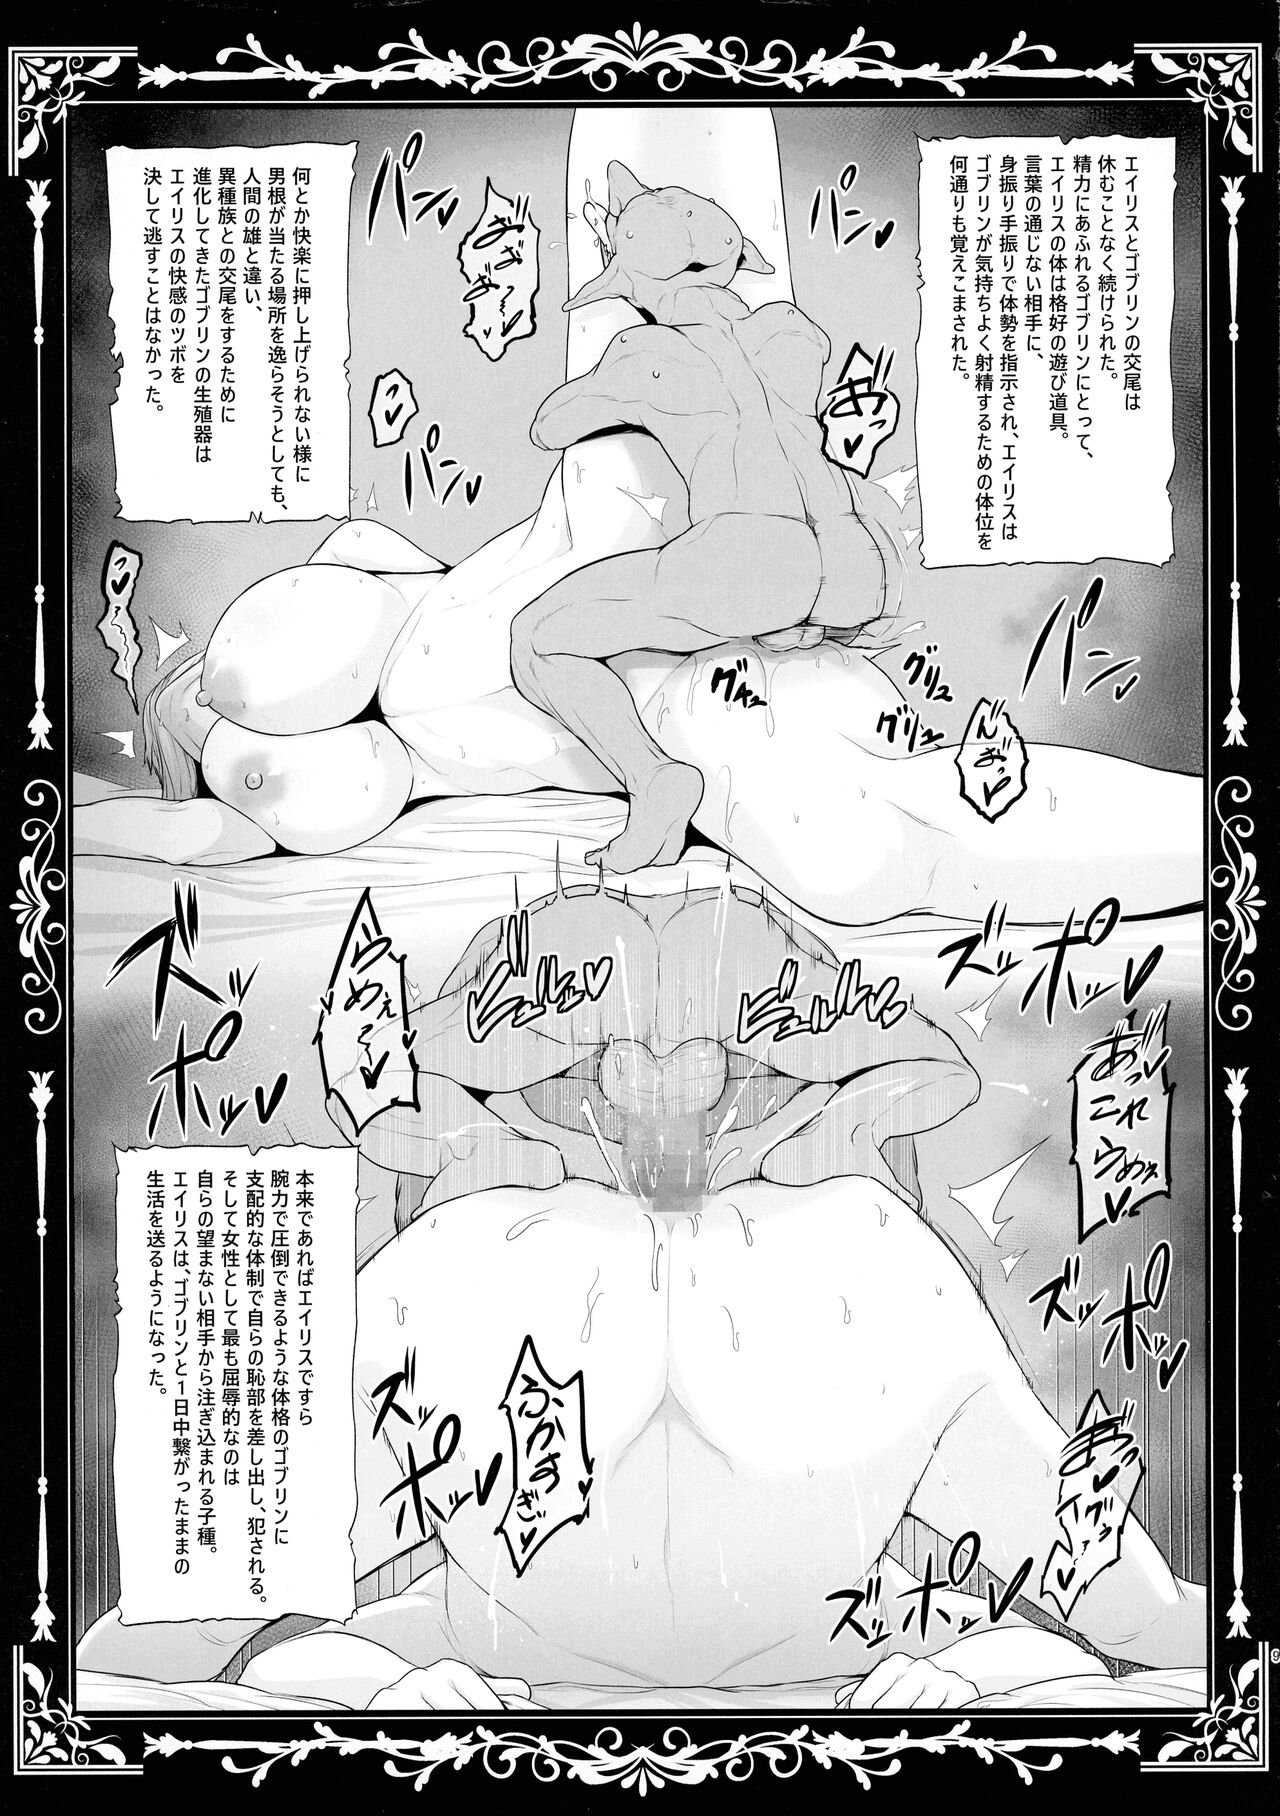 エイリスとゴブリンの交尾は
休むことなく続けられた。
精力にあふれるゴブリンにとって、
エイリスの体は格好の遊び道具。
言葉の通じない相手に、
身振り手振りで体勢を指示され、エイリスは
ゴブリンが気持ちよく射精するための体位を
何通りも覚えこまされた。
おっ♥
パンッ
パンッ
パンッ
何とか快楽に押し上げられない様に
男根が当たる場所を逸らそうとしても、
人間の雄と違い、
異種族との交尾をするために
進化してきたゴブリンの生殖器は
エイリスの快感のツボを
決して逃すことはなかった。
グチュ
グリュ
グリュ
んおっ♥
ズッ
ポッ
ズッ
ポッ
ビュルルッ♥
ビュルルルッ
らめぇ~♥
あっ
これ
らめぇ♥
ズッ
ポッ
ズッ
ポッ
ズッ
ポッ
ふかすぎ♥
本来であればエイリスですら
腕力で圧倒できるような体格のゴブリンに
支配的な体制で自らの恥部を差し出し、犯される。
そして女性として最も屈辱的なのは
自らの望まない相手から注ぎ込まれる子種。
エイリスは、ゴブリンと1日中繋がったままの
生活を送るようになった。
9